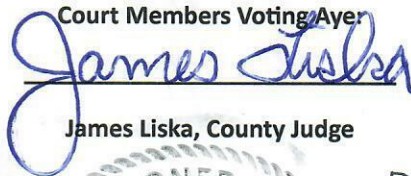 Court Members Voting Aye:
James Liska
James Liska, County Judge